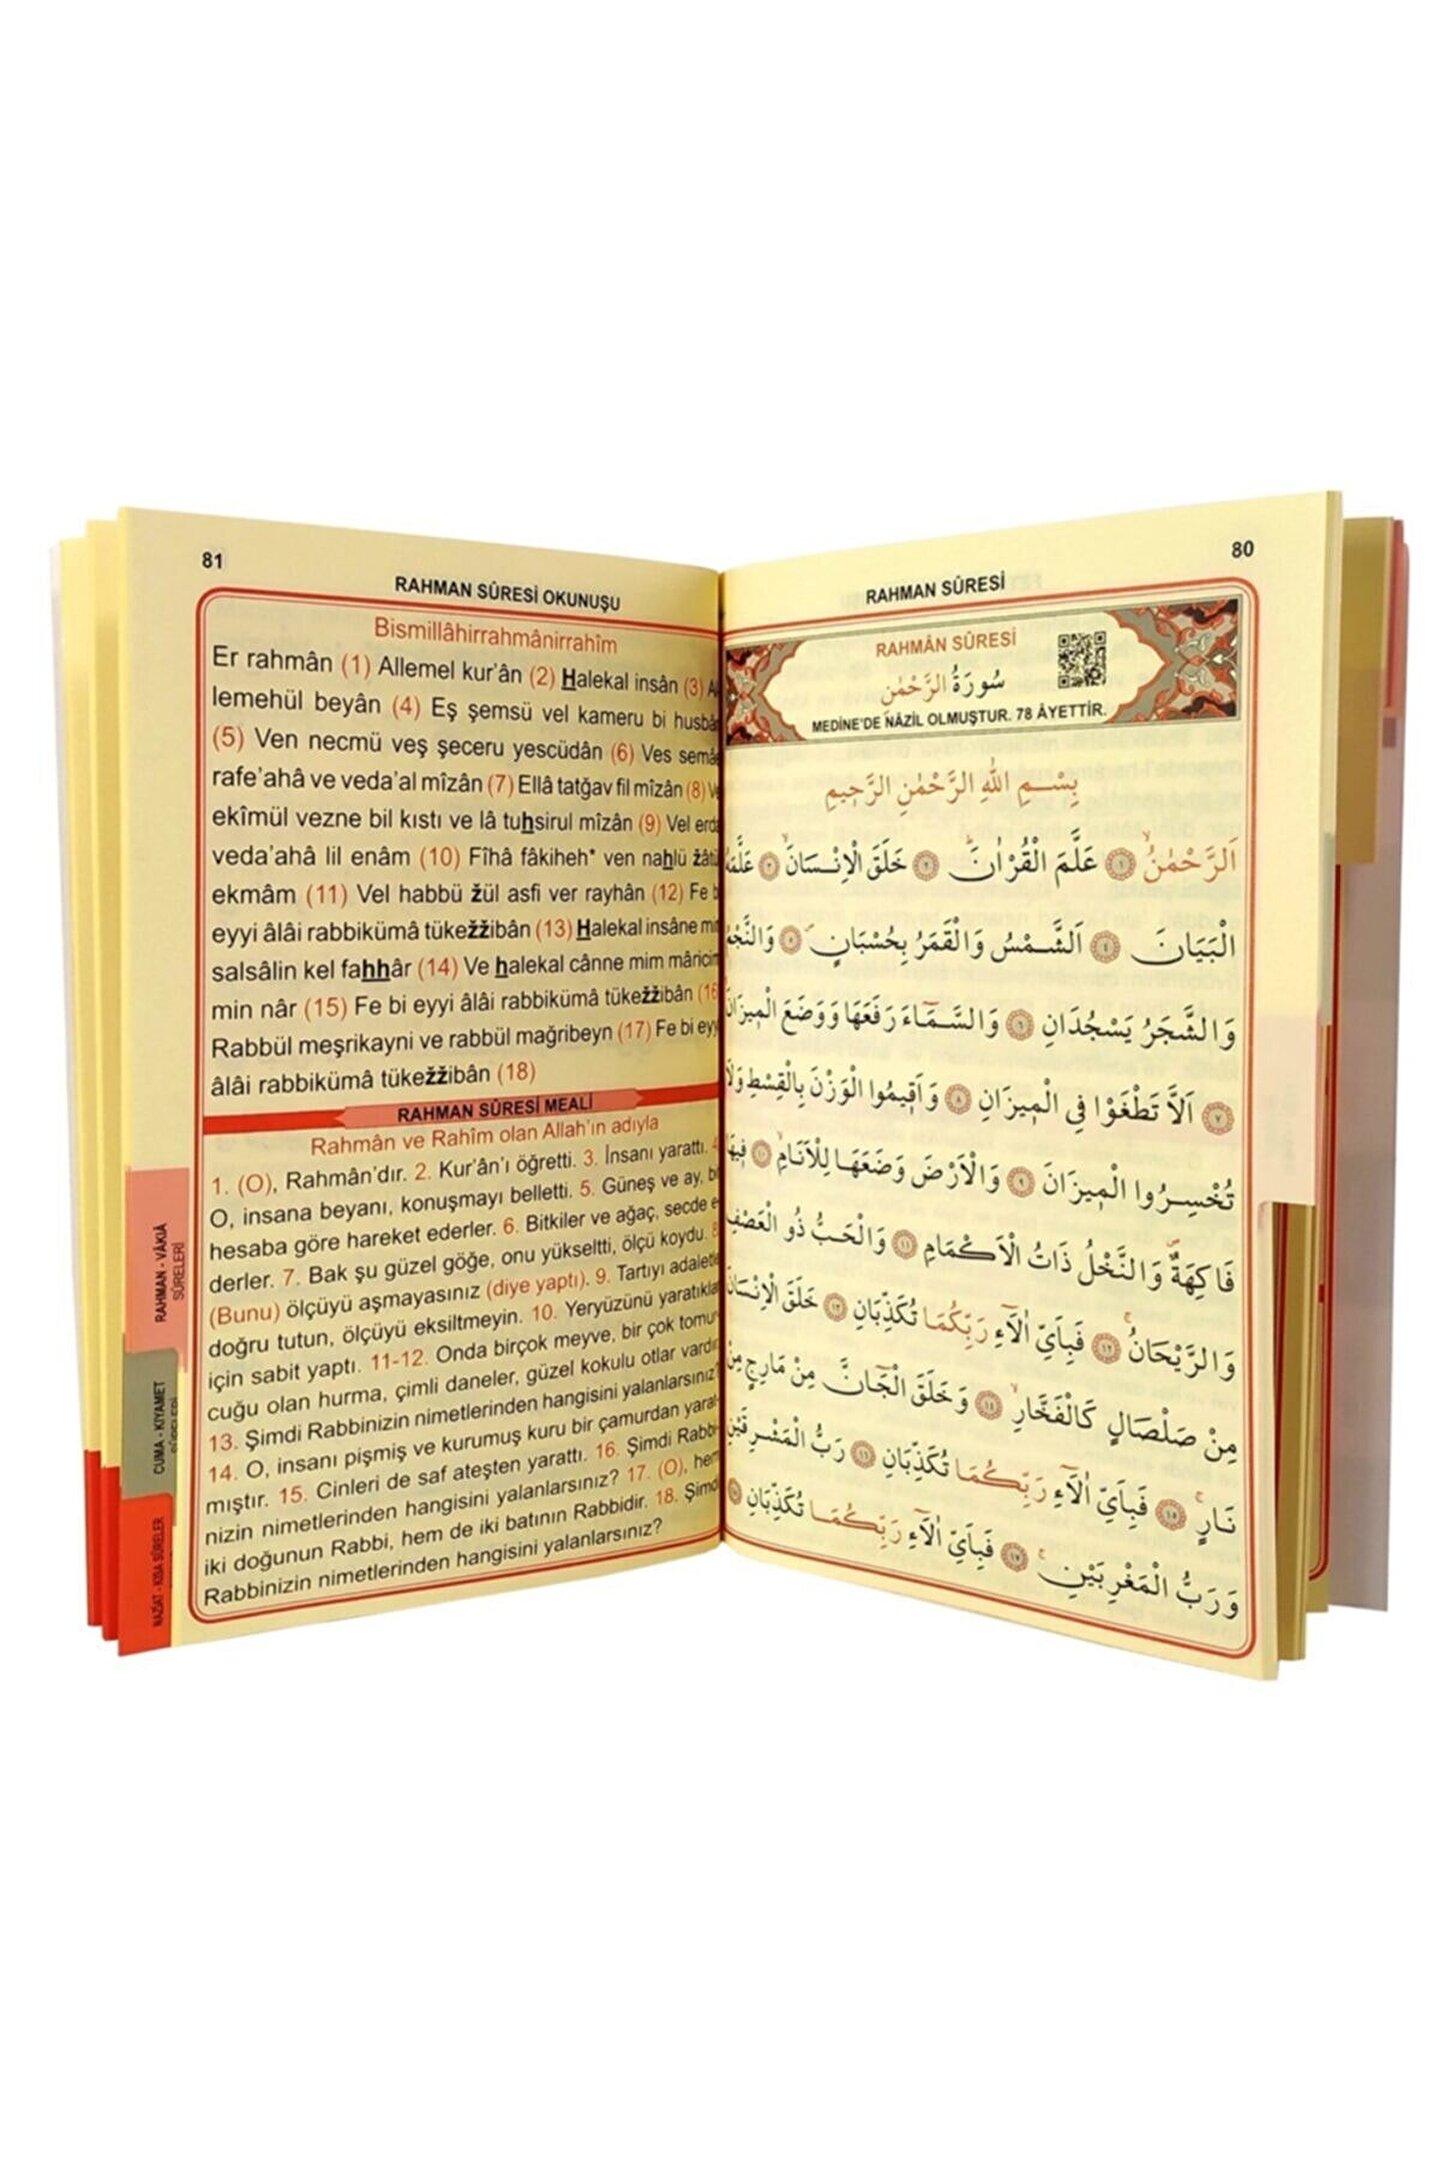 81
RAHMAN SÛRESİ OKUNUŞU
Bismillâhirrahmânirrahîm
Er rahmân (1) Allemel kur'ân (2) Halekal insân (3) Al
lemehül beyân (4) Eş şemsü vel kameru bi husbân
(5) Ven necmü veş şeceru yescüdân (6) Ves semâe
rafe'ahâ ve veda'al mîzân (7) Ellâ tatğav fil mîzân (8) Ve
ekîmül vezne bil kıstı ve lâ tuhsirul mîzân (9) Vel erda
veda'ahâ lil enâm (10) Fîhâ fâkiheh* ven nahlü žâtül
ekmâm (11) Vel habbü žül asfi ver rayhân (12) Fe bi
eyyi âlâi rabbikümâ tükežžibân (13) Halekal insâne min
salsâlin kel fahhâr (14) Ve halekal cânne mim mâricim
min nâr (15) Fe bi eyyi âlâi rabbikümâ tükežžibân (16)
Rabbül meşrikayni ve rabbül mağribeyn (17) Fe bi eyyi
âlâi rabbikümâ tükežžibân (18)
RAHMAN SÛRESİ MEALİ
Rahmân ve Rahîm olan Allah'ın adıyla
1. (O), Rahmân'dır. 2. Kur'ân'ı öğretti. 3. İnsanı yarattı. 4.
O, insana beyanı, konuşmayı belletti. 5. Güneş ve ay, bir
hesaba göre hareket ederler. 6. Bitkiler ve ağaç, secde e-
derler. 7. Bak şu güzel göğe, onu yükseltti, ölçü koydu. 8.
(Bunu) ölçüyü aşmayasınız (diye yaptı). 9. Tartıyı adaletle
doğru tutun, ölçüyü eksiltmeyin. 10. Yeryüzünü yaratıklar
için sabit yaptı. 11-12. Onda birçok meyve, bir çok tomur-
cuğu olan hurma, çimli daneler, güzel kokulu otlar vardır.
13. Şimdi Rabbinizin nimetlerinden hangisini yalanlarsınız?
14. O, insanı pişmiş ve kurumuş kuru bir çamurdan yarat-
mıştır. 15. Cinleri de saf ateşten yarattı. 16. Şimdi Rabbi-
nizin nimetlerinden hangisini yalanlarsınız? 17. (O), hem
iki doğunun Rabbi, hem de iki batının Rabbidir. 18. Şimdi
Rabbinizin nimetlerinden hangisini yalanlarsınız?
RAHMAN - VÂKIÂ
SÛRELERİ
CUMA - KIYAMET
KISA SÛRELER
80
RAHMAN SÛRESİ
RAHMÂN SÛRESİ
سُورَةُ الرَّحْمٰنِ
MEDİNE'DE NÂZİL OLMUŞTUR. 78 ÂYETTİR.
بِسْمِ اللّٰهِ الرَّحْمٰنِ الرَّحِيمِ
اَلرَّحْمٰنُۙ ﴿١﴾ عَلَّمَ الْقُرْاٰنَۜ ﴿٢﴾ خَلَقَ الْاِنْسَانَۙ ﴿٣﴾ عَلَّمَهُ
الْبَيَانَ ﴿٤﴾ اَلشَّمْسُ وَالْقَمَرُ بِحُسْبَانٍۖ ﴿٥﴾ وَالنَّجْمُ
وَالشَّجَرُ يَسْجُدَانِ ﴿٦﴾ وَالسَّمَٓاءَ رَفَعَهَا وَوَضَعَ الْمِيزَانَۙ
﴿٧﴾ اَلَّا تَطْغَوْا فِي الْمِيزَانِ ﴿٨﴾ وَاَقِيمُوا الْوَزْنَ بِالْقِسْطِ وَلَا
تُخْسِرُوا الْمِيزَانَ ﴿٩﴾ وَالْاَرْضَ وَضَعَهَا لِلْاَنَامِۙ ﴿١٠﴾ فِيهَا
فَاكِهَةٌۖ وَالنَّخْلُ ذَاتُ الْاَكْمَامِ ﴿١١﴾ وَالْحَبُّ ذُو الْعَصْفِ
وَالرَّيْحَانُۚ ﴿١٢﴾ فَبِاَيِّ اٰلَٓاءِ رَبِّكُمَا تُكَذِّبَانِ ﴿١٣﴾ خَلَقَ الْاِنْسَانَ
مِنْ صَلْصَالٍ كَالْفَخَّارِۙ ﴿١٤﴾ وَخَلَقَ الْجَٓانَّ مِنْ مَارِجٍ مِنْ
نَارٍۚ ﴿١٥﴾ فَبِاَيِّ اٰلَٓاءِ رَبِّكُمَا تُكَذِّبَانِ ﴿١٦﴾ رَبُّ الْمَشْرِقَيْنِ
وَرَبُّ الْمَغْرِبَيْنِۚ ﴿١٧﴾ فَبِاَيِّ اٰلَٓاءِ رَبِّكُمَا تُكَذِّبَانِ ﴿١٨﴾